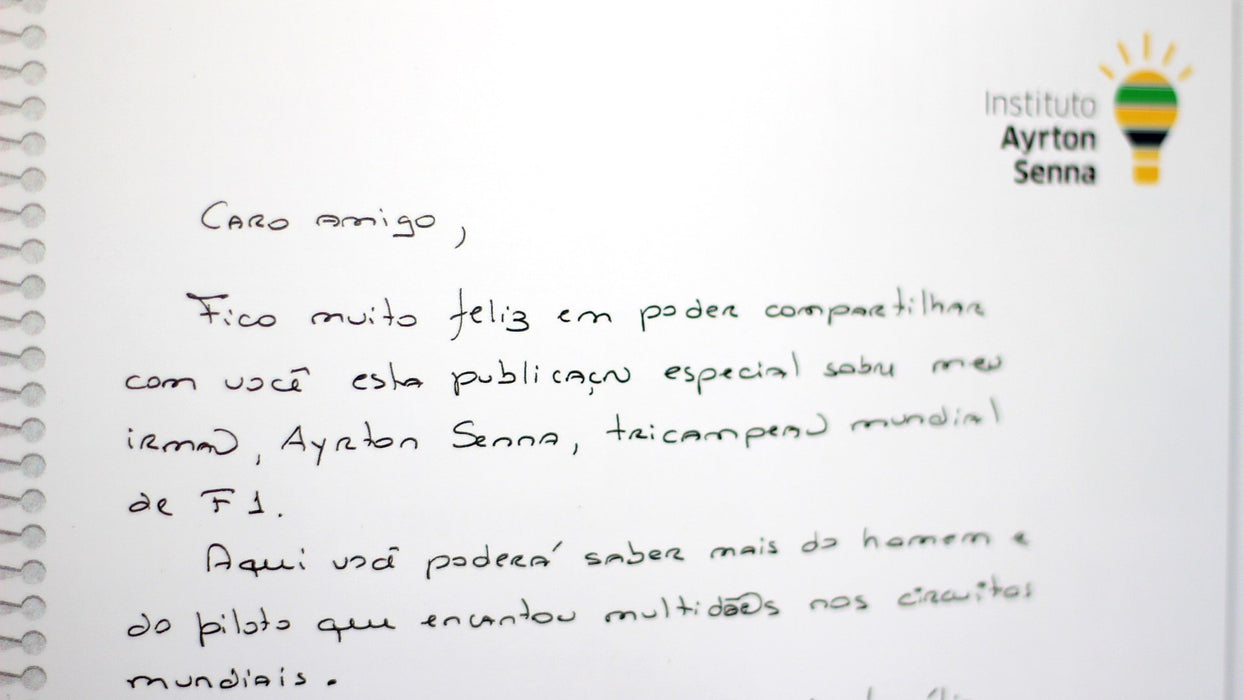 Instituto
Ayrton
Senna
Caro amigo,
Fico muito feliz em poder compartilhar
com você esta publicação especial sobre meu
irmão, Ayrton Senna, tricampeão mundial
de F1.
Aqui você poderá saber mais do homem e
do piloto que encantou multidões nos circuitos
mundiais.